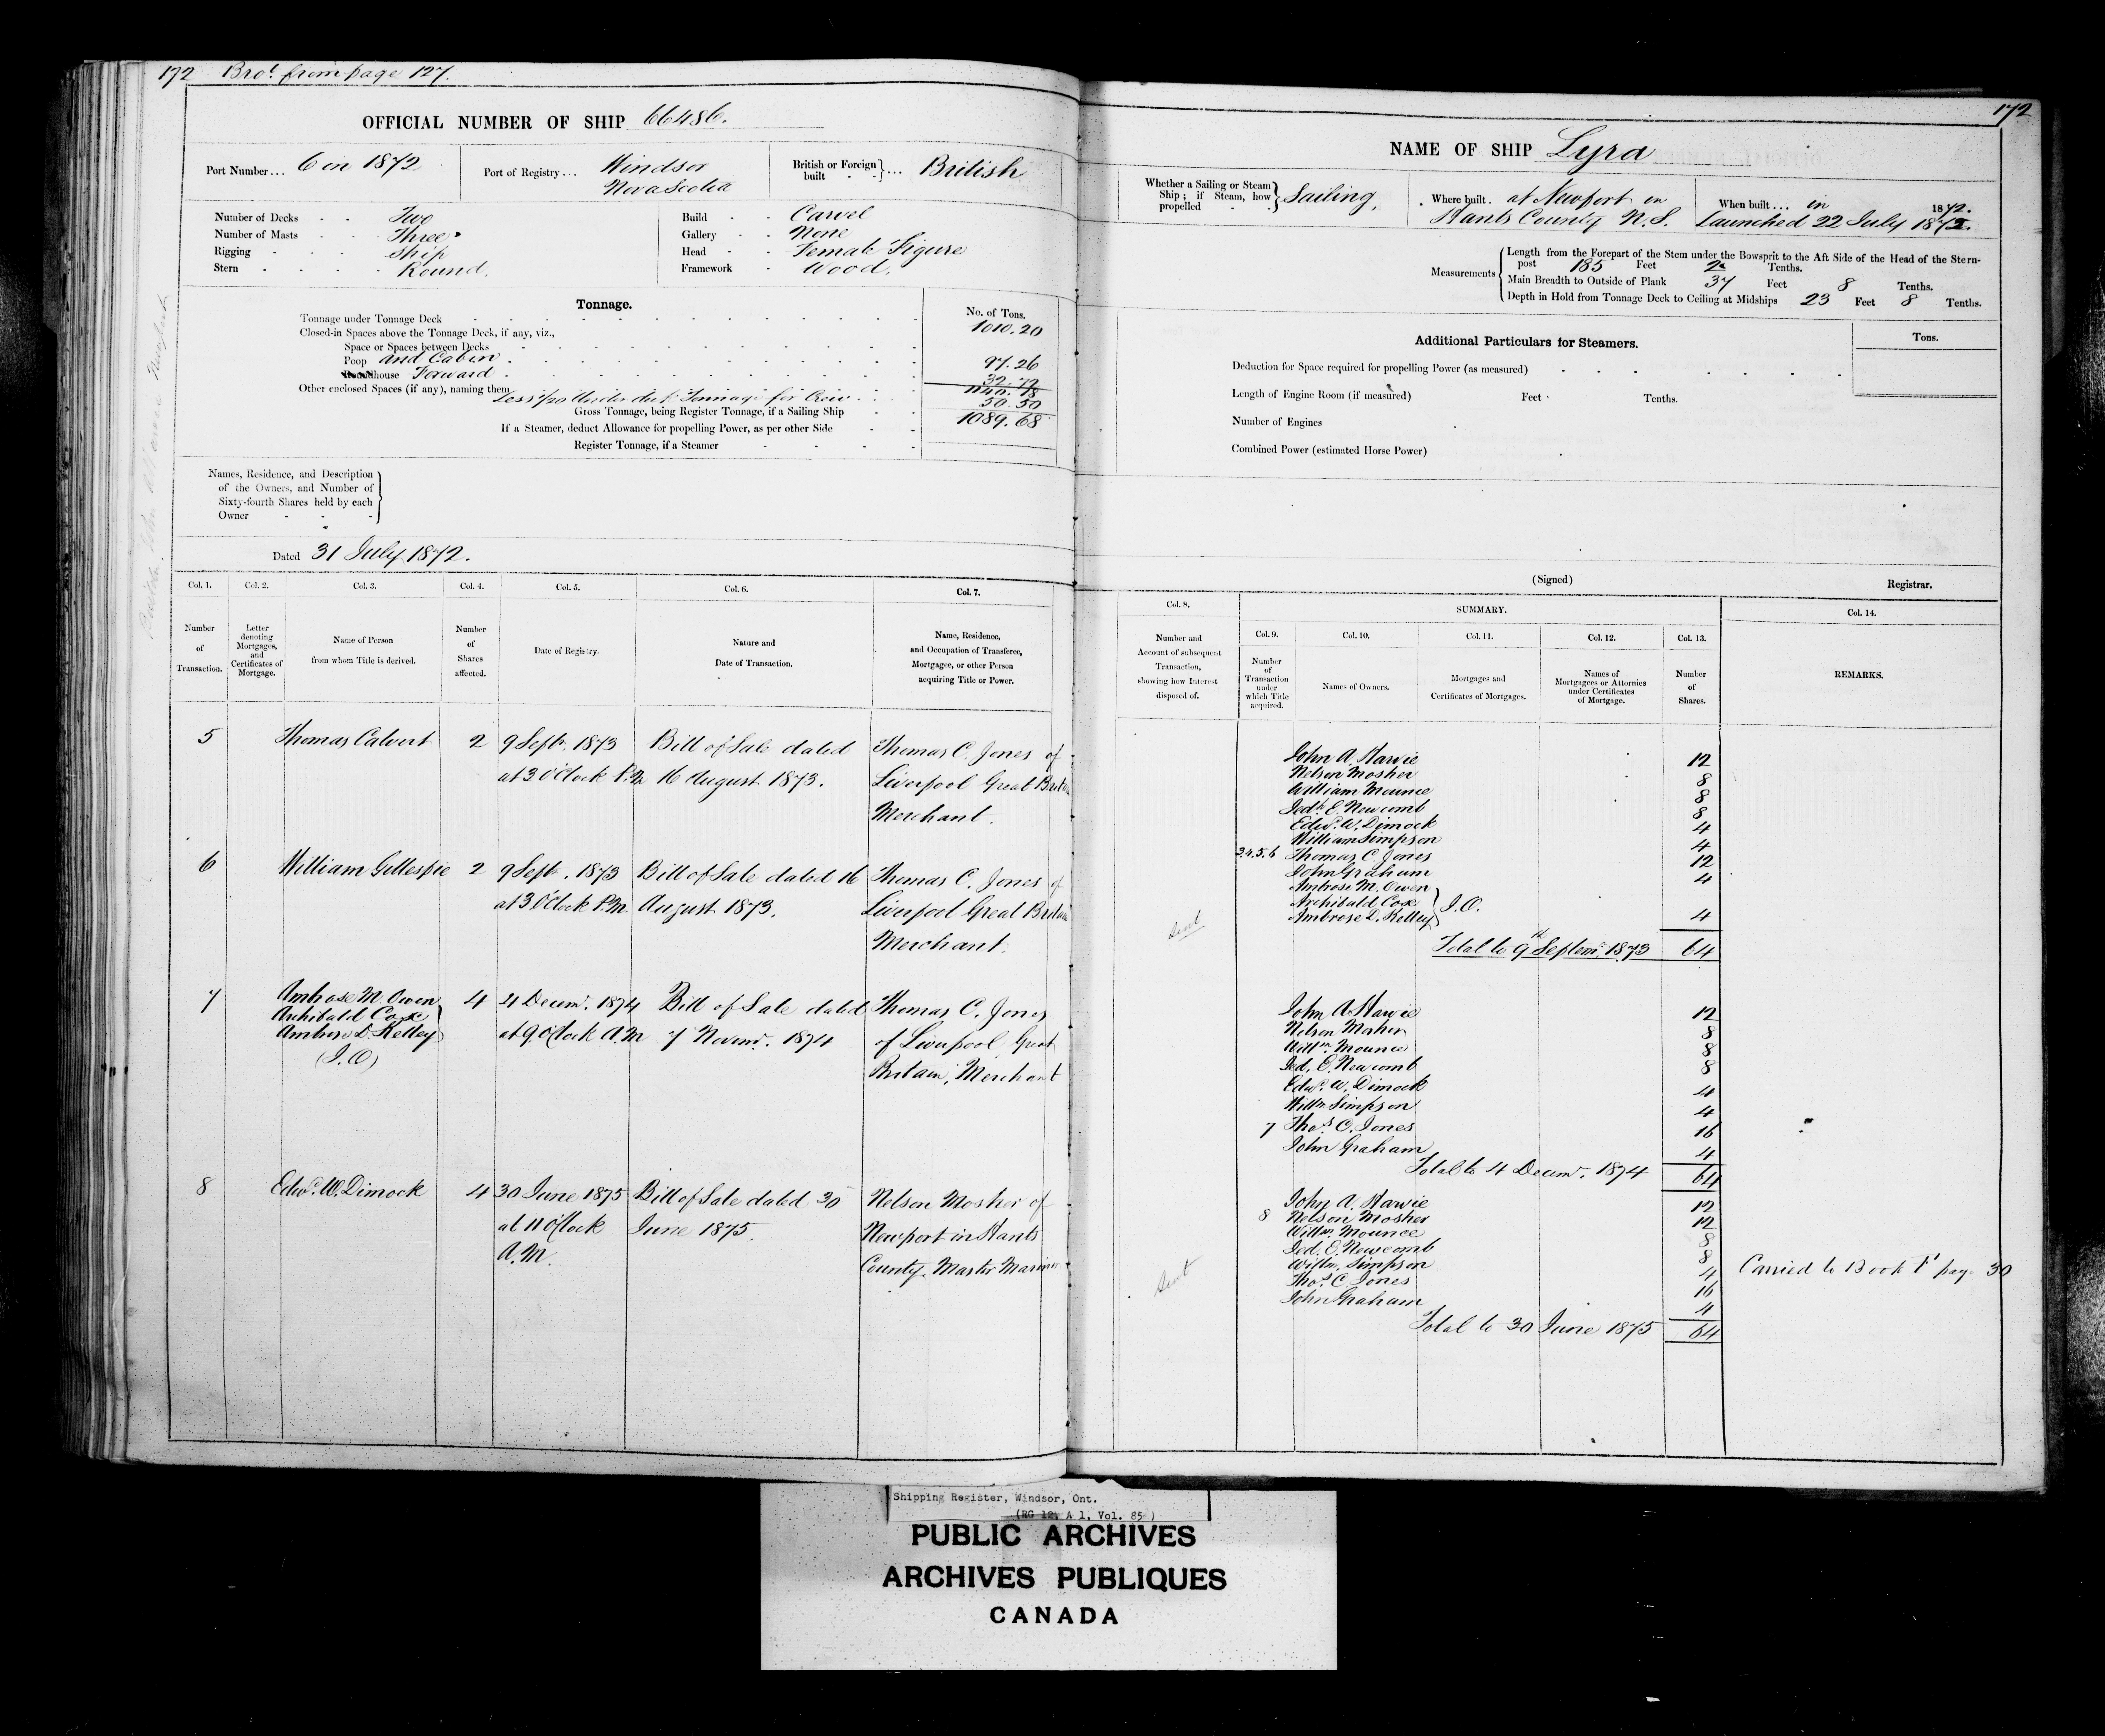 172 Brot. from page 127.
OFFICIAL NUMBER OF SHIP 66486.
Port Number... 6 in 1872
Port of Registry... Windsor
Nova Scotia
British or Foreign built ... British
Number of Decks - - Two
Number of Masts - - Three
Rigging - - - Ship
Stern - - - - Round.
Build - - Carvel
Gallery - - None
Head - - Female Figure
Framework - Wood.
Tonnage.
No. of Tons.
Tonnage under Tonnage Deck 1010.20
Closed-in Spaces above the Tonnage Deck, if any, viz.,
Space or Spaces between Decks
Poop and Cabin 97.26
house Forward 32.72
Other enclosed Spaces (if any), naming them 1140.18
Tonnage for Crew 50.50
Gross Tonnage, being Register Tonnage, if a Sailing Ship 1089.68
If a Steamer, deduct Allowance for propelling Power, as per other Side
Register Tonnage, if a Steamer
Names, Residence, and Description
of the Owners, and Number of
Sixty-fourth Shares held by each
Owner
Dated 31 July 1872.
Col. 1. Col. 2. Col. 3. Col. 4. Col. 5. Col. 6. Col. 7.
Number of Transaction.
Letter denoting Mortgages, and Certificates of Mortgage.
Name of Person from whom Title is derived.
Number of Shares affected.
Date of Registry.
Nature and Date of Transaction.
Name, Residence, and Occupation of Transferee, Mortgagee, or other Person acquiring Title or Power.
5 Thomas Calvert 2 9 Septr. 1873 Bill of Sale dated Thomas C. Jones of
at 3 O'Clock P.M. 16 August 1873. Liverpool Great Britain
Merchant.
6 William Gillespie 2 9 Septr. 1873 Bill of Sale dated 16 Thomas C. Jones of
at 3 O'Clock P.M. August 1873. Liverpool Great Britain
Merchant.
7 Ambrose M. Owen 4 4 Decemr. 1874 Bill of Sale dated Thomas C. Jones
Archibald Cox
at 9 O'Clock A.M 7 Novemr. 1874 of Liverpool Great
Ambrose D. Kelley
(J.O) Britain, Merchant
8 Edwd. W. Dimock 4 30 June 1875 Bill of Sale dated 30 Nelson Mosher of
at 11 O'Clock June 1875. Newport in Hants
A.M. County, Master Mariner
172
NAME OF SHIP Lyra
Whether a Sailing or Steam Ship; if Steam, how propelled Sailing.
Where built. at Newport in
Hants County N.S.
When built... in 1872.
Launched 22 July 1872.
Measurements
Length from the Forepart of the Stem under the Bowsprit to the Aft Side of the Head of the Stern-
post 185 Feet 2 Tenths.
Main Breadth to Outside of Plank 37 Feet 8 Tenths.
Depth in Hold from Tonnage Deck to Ceiling at Midships 23 Feet 8 Tenths.
Additional Particulars for Steamers.
Tons.
Deduction for Space required for propelling Power (as measured)
Length of Engine Room (if measured) Feet Tenths.
Number of Engines
Combined Power (estimated Horse Power)
(Signed) Registrar.
Col. 8. SUMMARY. Col. 14.
Col. 9. Col. 10. Col. 11. Col. 12. Col. 13.
Number and Account of subsequent Transaction, showing how Interest disposed of.
Number of Transaction under which Title acquired.
Names of Owners.
Mortgages and Certificates of Mortgages.
Names of Mortgagees or Attornies under Certificates of Mortgage.
Number of Shares.
REMARKS.
John A. Harvie 12
Nelson Mosher 8
William Mounce 8
Jedh. E. Newcomb 8
Edwd. W. Dimock 4
William Simpson 4
3.4.5.6 Thomas C. Jones 12
John Graham 4
Ambrose M. Owen
Archibald Cox J.O.
Ambrose D. Kelley 4
Sent
Total to 9th Septemr. 1873 64
John A Harvie 12
Nelson Mosher 8
Willm. Mounce 8
Jed. E. Newcomb 8
Edwd. W. Dimock 4
Willm Simpson 4
7 Thos. C. Jones 16
John Graham 4
Total to 4 Decemr. 1874 64
John A. Harvie 12
8 Nelson Mosher 12
Willm. Mounce 8
Jed. E. Newcomb 8
Willm. Simpson 4
Thos. C. Jones 16
John Graham 4
Sent
Total to 30 June 1875 64
Carried to Book F page 30
Shipping Register, Windsor, Ont.
(RG 12, A 1, Vol. 85)
PUBLIC ARCHIVES
ARCHIVES PUBLIQUES
CANADA